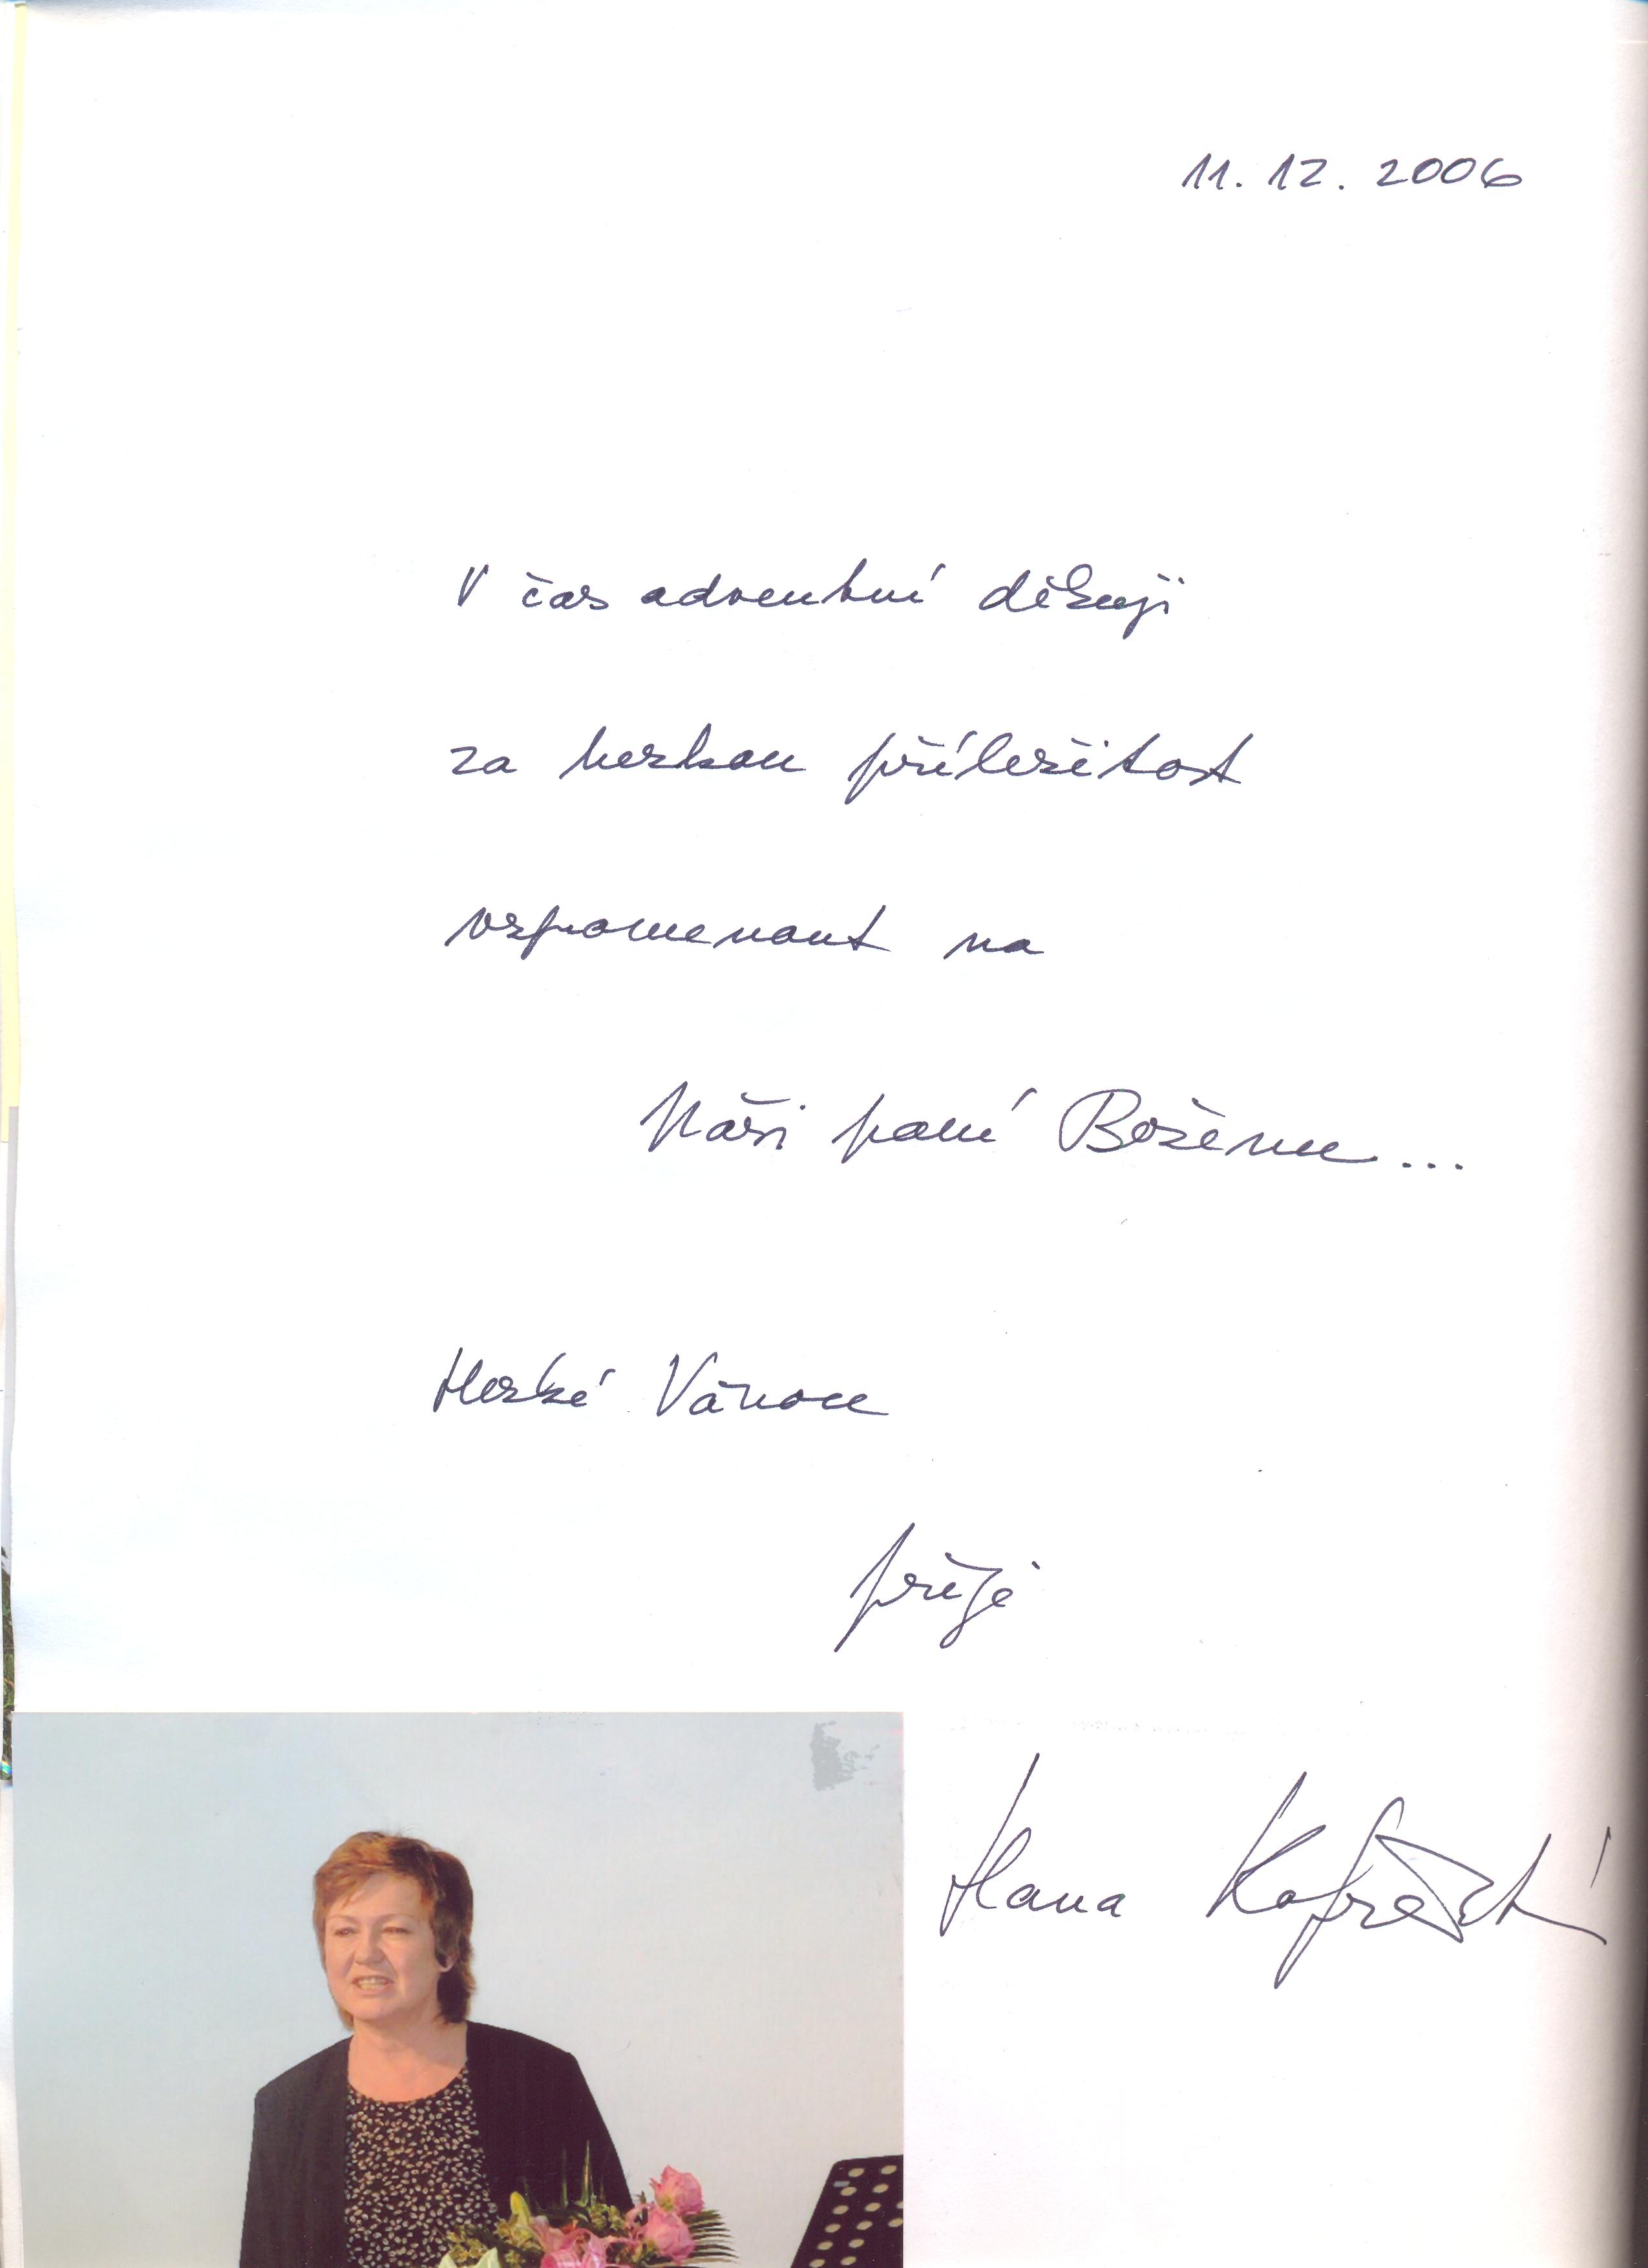 11. 12. 2006
V čas adventní děkuji
za hezkou příležitost
vzpomenout na
Naši paní Boženu...
Hezké Vánoce
přeje
Hana